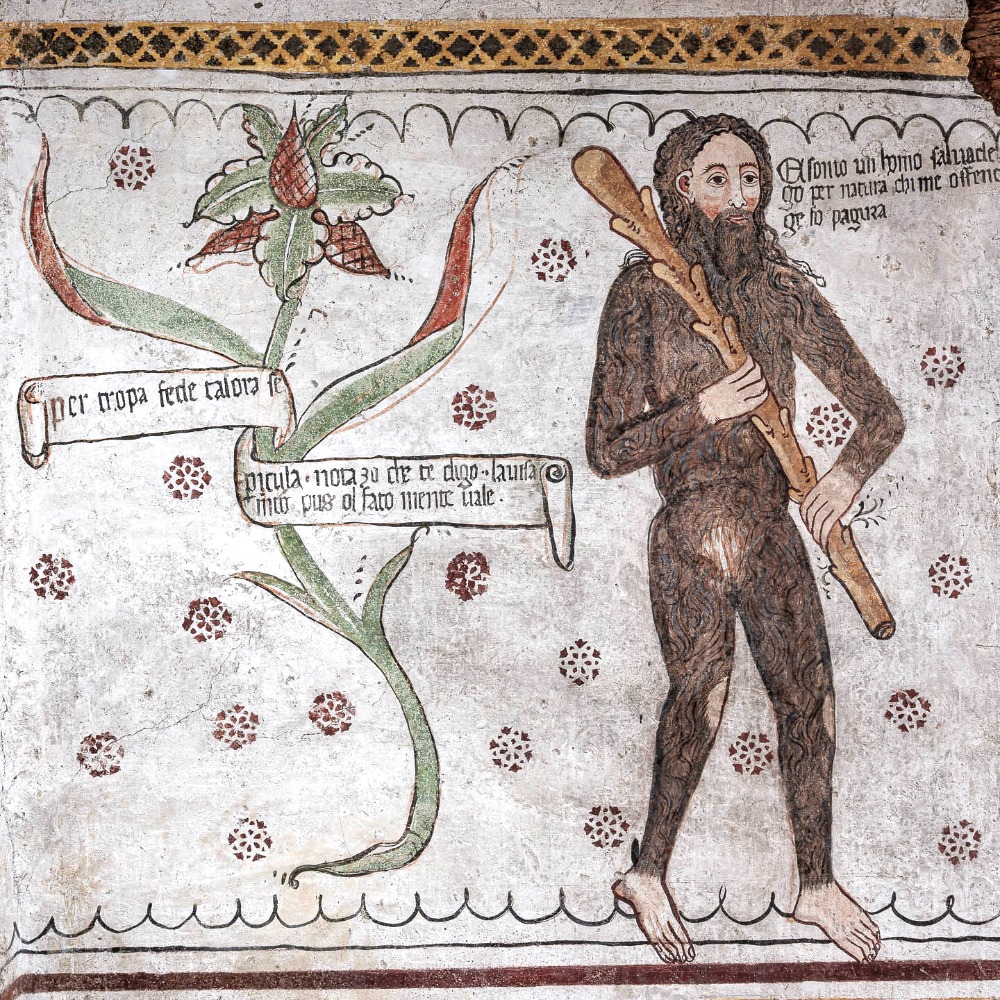 per tropa fede talora se
picula · nota zo che te digo · lauisa
mto pus ol fato mente uale ·
E sonto un homo saluadeg
go per natura chi me offend
ge fo pagura